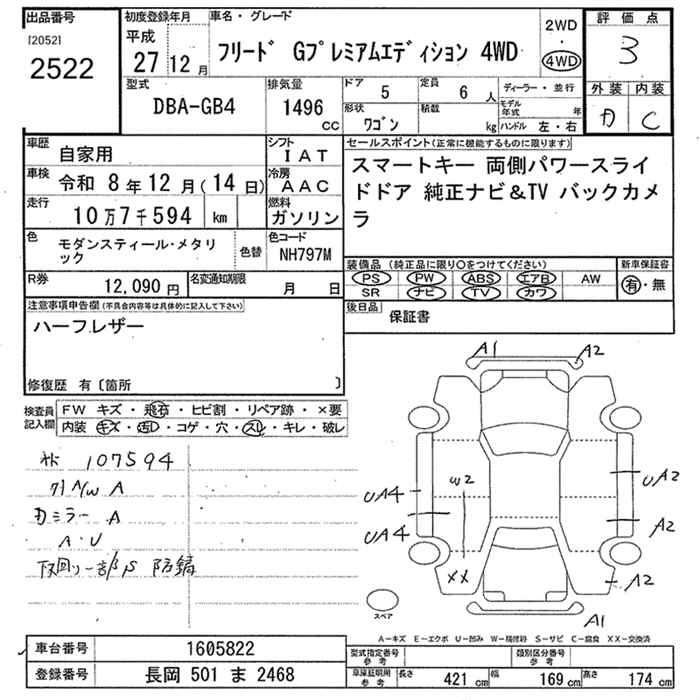 出品番号
[2052]
2522
初度登録年月
平成
27 12 月
車名・グレード
フリード Gプレミアムエディション 4WD
2WD
・
4WD
評価点
3
外装 内装
C
型式
DBA-GB4
排気量
1496
CC
ドア
5
定員
6 人
形状
ワゴン
積載
kg
ディーラー・並行
モデル年式 年
ハンドル 左・右
車歴
自家用
シフト
IAT
車検
令和 8年12月(14日)
冷房
AAC
走行
10万7千594 km
燃料
ガソリン
色
モダンスティール・メタリック
色替
色コード
NH797M
R券
12,090 円
名変通知期限
月 日
セールスポイント(正常に機能するものに限ります)
スマートキー 両側パワースライ
ドドア 純正ナビ&TV バックカメ
ラ
装備品(純正品に限り○をつけてください)
PS PW ABS エアB AW
SR ナビ TV カワ
新車保証書
有・無
後日品
保証書
注意事項申告欄(不具合内容等は具体的に記入して下さい)
ハーフレザー
修復歴 有〔箇所 〕
検査員
記入欄
FW キズ・飛石・ヒビ割・リペア跡・×要
内装 キズ・汚レ・コゲ・穴・スレ・キレ・破レ
107594
A/W A
ミラー A
A・U
下回り一部S 防錆
A1
A2
W2
UA4
UA4
UA2
A2
A2
XX
A1
スペア
A―キズ E―エクボ U―凹み W―補修跡 S―サビ C―腐食 XX―交換済
車台番号
1605822
登録番号
長岡 501 ま 2468
型式指定番号
参考
類別区分番号
参考
車庫証明用
参考
長さ 421 cm 幅 169 cm 高さ 174 cm